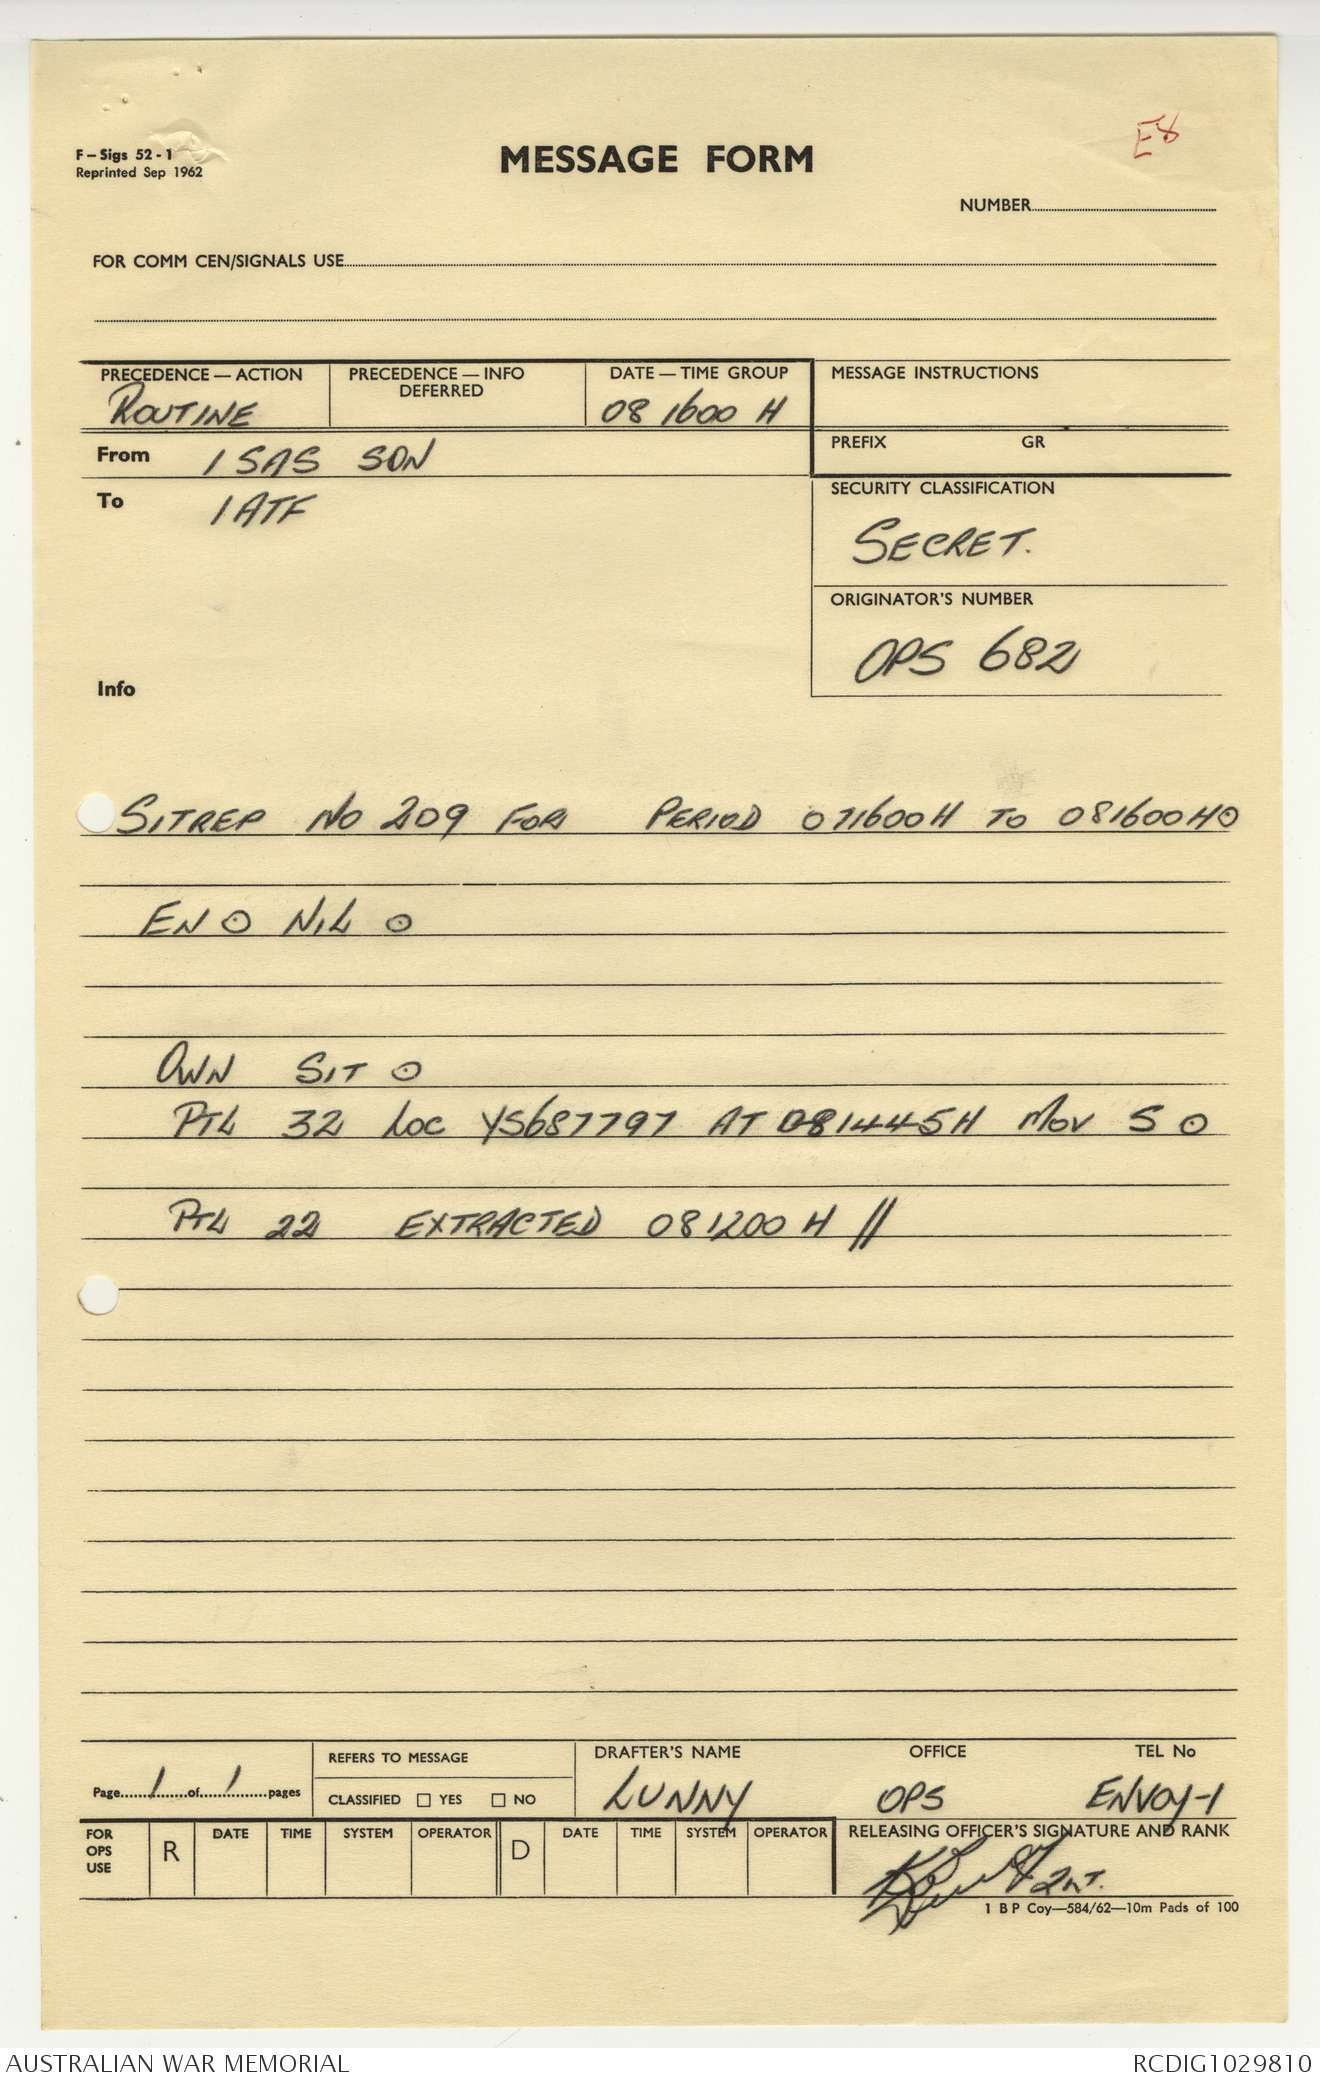 E8
F – Sigs 52 - 1
Reprinted Sep 1962
MESSAGE FORM
NUMBER
FOR COMM CEN/SIGNALS USE
PRECEDENCE — ACTION
ROUTINE
PRECEDENCE — INFO
DEFERRED
DATE — TIME GROUP
08 1600 H
MESSAGE INSTRUCTIONS
PREFIX GR
From 1 SAS SQN
To 1 ATF
SECURITY CLASSIFICATION
SECRET.
ORIGINATOR'S NUMBER
OPS 682
Info
SITREP NO 209 FOR PERIOD 071600H TO 081600H ⊙
EN ⊙ NIL ⊙
OWN SIT ⊙
PTL 32 LOC YS687797 AT 081445H MOV S ⊙
PTL 22 EXTRACTED 081200 H //
Page 1 of 1 pages
REFERS TO MESSAGE
CLASSIFIED □ YES □ NO
DRAFTER'S NAME
LUNNY
OFFICE
OPS
TEL No
ENVOY-1
FOR OPS USE
R DATE TIME SYSTEM OPERATOR D DATE TIME SYSTEM OPERATOR
RELEASING OFFICER'S SIGNATURE AND RANK
2LT.
1 B P Coy—584/62—10m Pads of 100
AUSTRALIAN WAR MEMORIAL
RCDIG1029810